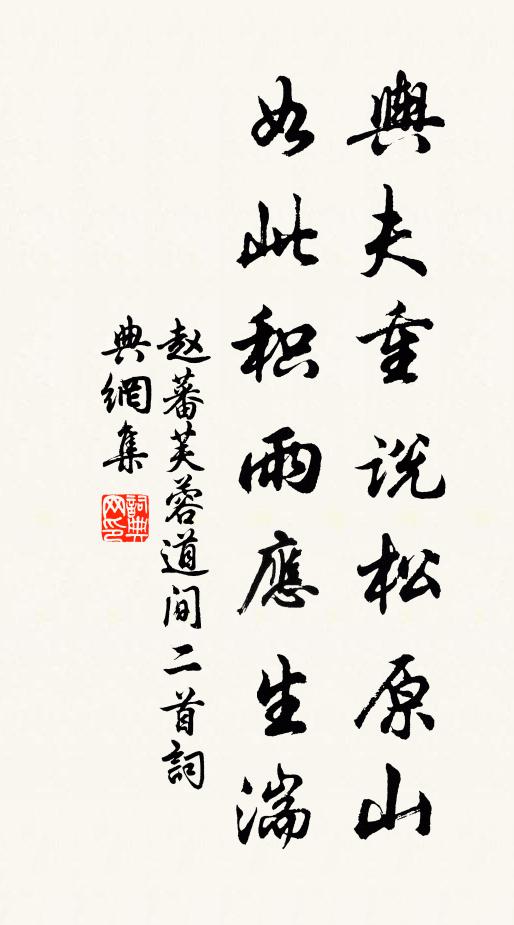 輿夫重说松原山
如此积雨應生湍
赵蕃芙蓉道间二首詞
典網集
詞典
网印